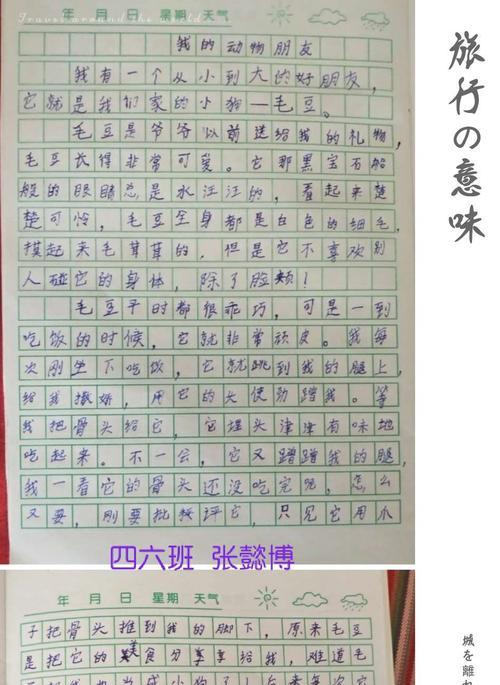 年 月 日 星期 天气
Travel around the world
我的动物朋友
我有一个从小到大的好朋友，
它就是我们家的小狗—毛豆。
毛豆是爷爷以前送给我的礼物，
毛豆长得非常可爱。它那黑宝石船
般的眼睛总是水汪汪的，看起来楚
楚可怜，毛豆全身都是白色的细毛，
摸起来毛茸茸的，但是它不喜欢别
人碰它的身体，除了脸颊！
毛豆平时都很乖巧，可是一到
吃饭的时候，它就非常顽皮。我每
次刚坐下吃饭，它就跳到我的腿上，
给我撒娇，用它的头使劲蹭我。等
我把骨头给它，它埋头津津有味地
吃起来。不一会，它又蹭蹭我的腿，
我一看它的骨头还没吃完呢，怎么
又要，刚要批评它，只见它用爪
四六班 张懿博
年 月 日 星期 天气
子把骨头推到我的脚下，原来毛豆
是把它的美食分享享给我，难道毛
旅行の意味
城を離れ